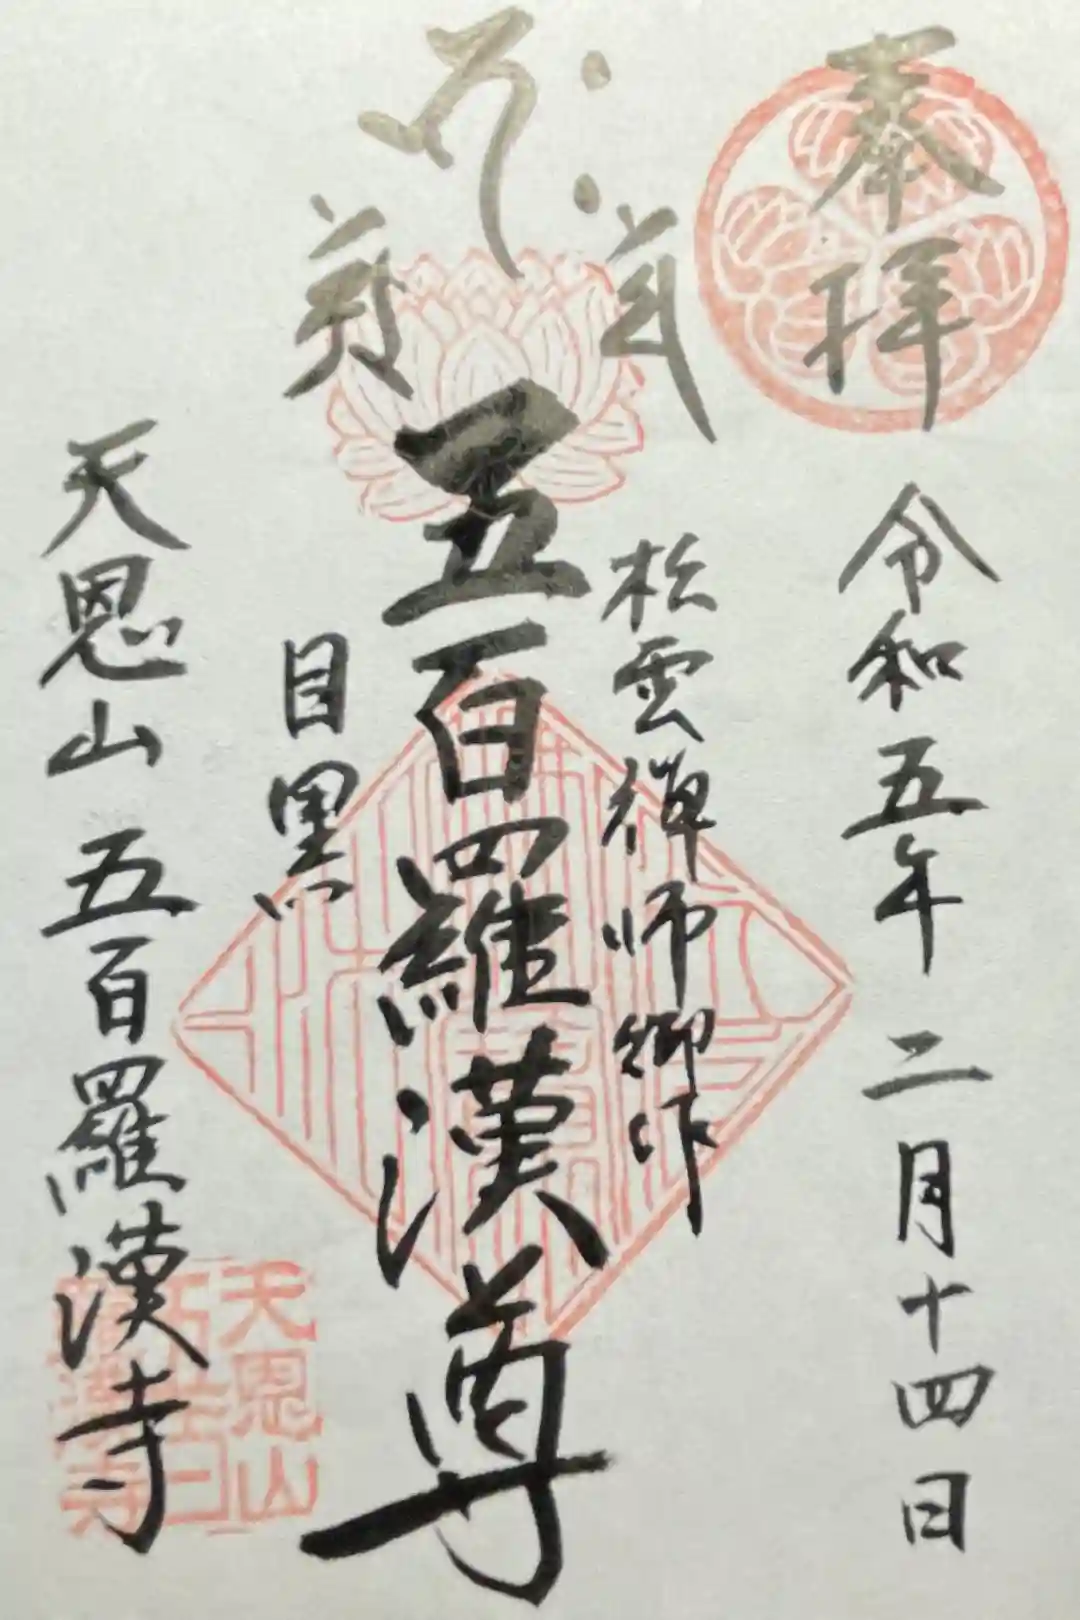 奉拝
令和五年二月十四日
松雲禅師御作
五百羅漢尊
目黒
天恩山 五百羅漢寺
天恩山
五百
羅漢寺